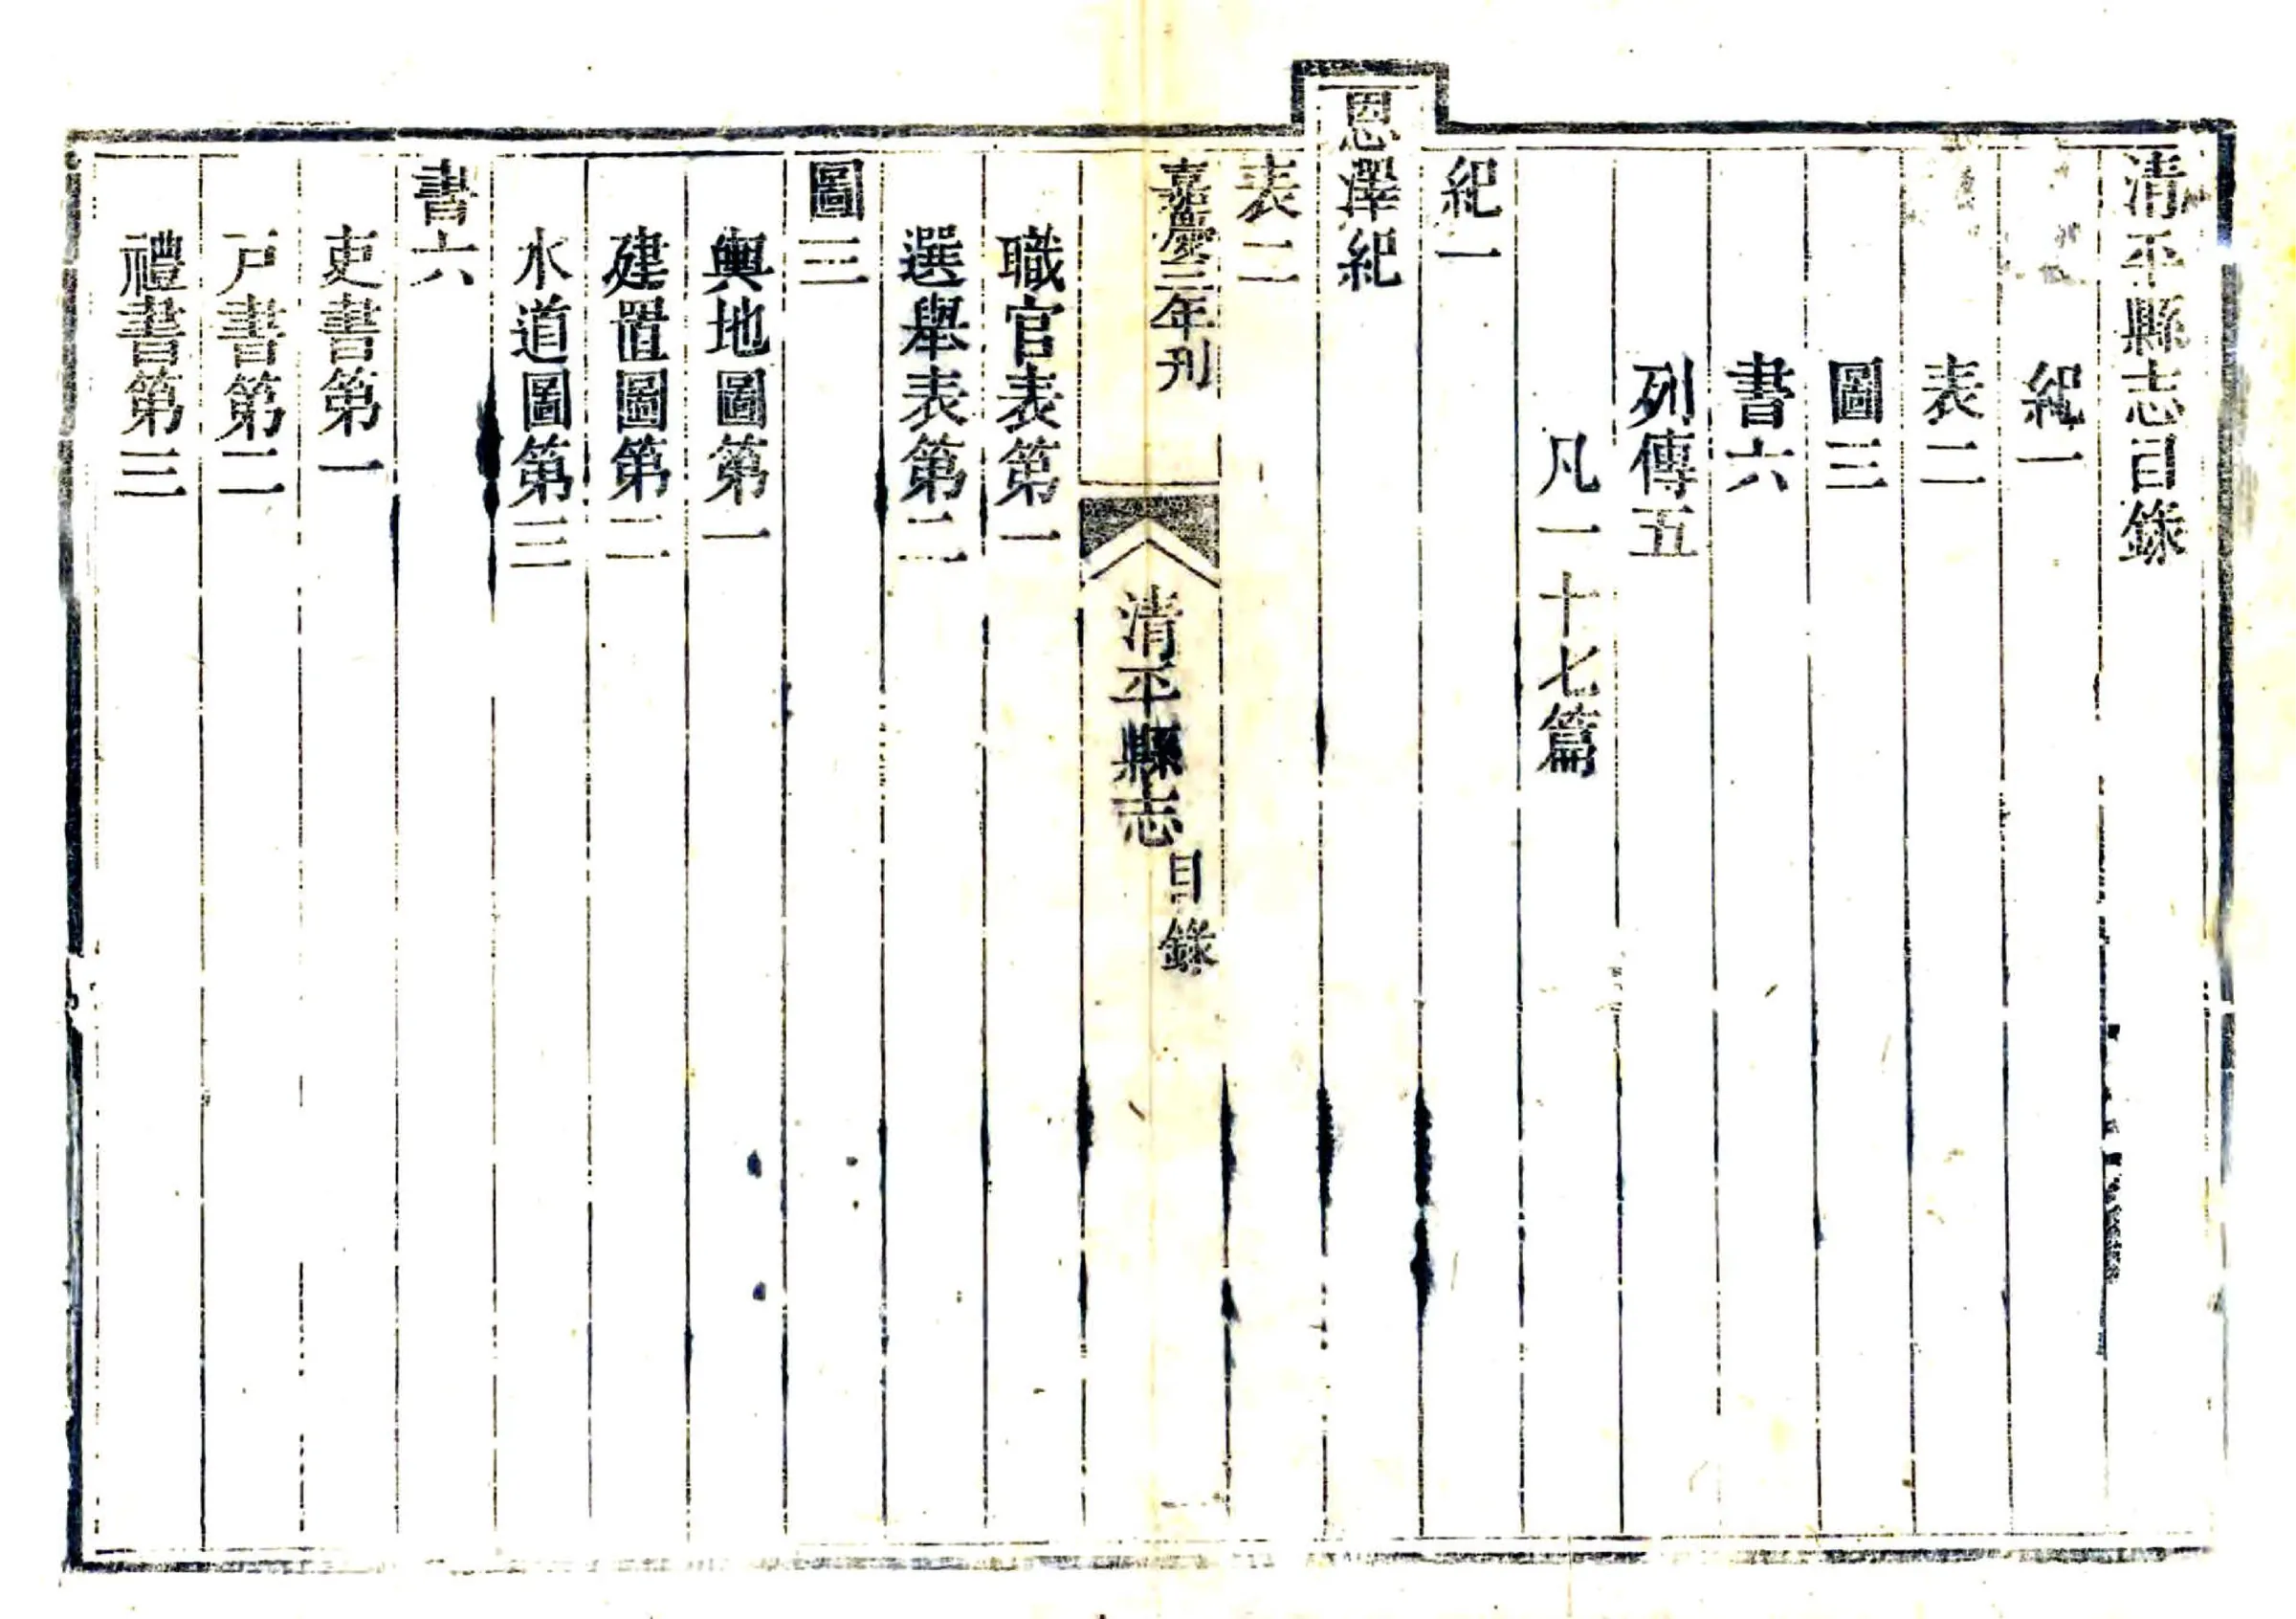 清平縣志目錄
紀一
表二
圖三
書六
列傳五
凡一十七篇
紀一
恩澤紀
表二
嘉慶三年刊
清平縣志
目錄
一
職官表第一
選舉表第二
圖三
輿地圖第一
建置圖第二
水道圖第三
書六
吏書第一
戸書第二
禮書第三